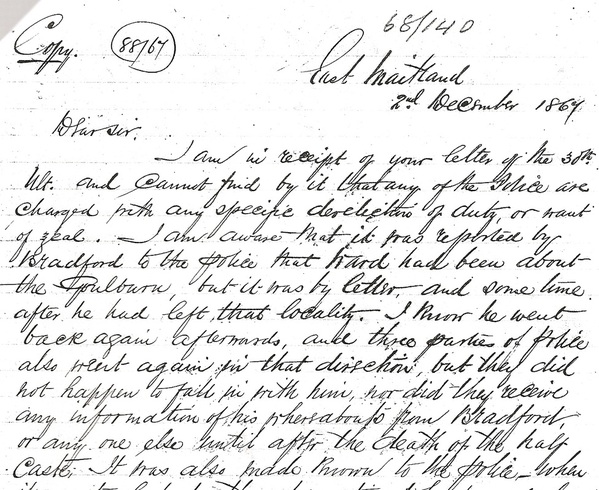 68/140
Copy.
88/67
East Maitland
2nd December 1867
Dear Sir.
I am in receipt of your letter of the 30th
Ult. and cannot find by it that any of the Police are
charged with any specific dereliction of duty, or want
of zeal. I am aware that it was reported by
Bradford to the police that Ward had been about
the Goulburn, but it was by letter, and some time
after he had left that locality. I know he went
back again afterwards, and three parties of Police
also went again in that direction, but they did
not happen to fall in with him, nor did they receive
any information of his whereabouts from Bradford,
or any one else until after the death of the half
Caste. It was also made known to the police – when